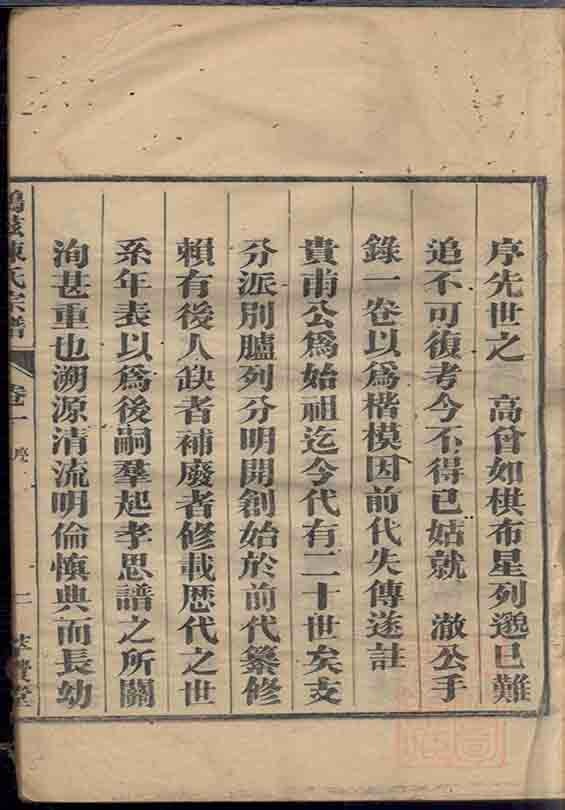 序先世之　高曾如棋布星列邈已難
追不可復考今不得已姑就　澈公手
錄一卷以為楷模因前代失傳遂註
貴甫公為始祖迄今代有二十世矣支
分派別臚列分明開創始於前代纂修
賴有後人缺者補廢者修載歷代之世
系年表以為後嗣羣起孝思譜之所關
洵甚重也溯源清流明倫慎典而長幼
陳氏宗譜　卷一　序